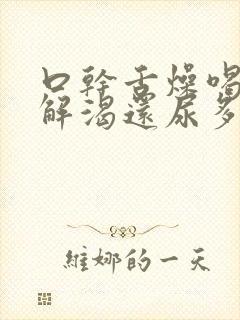 口幹舌燥喝
解渴還尿多
維娜的一天